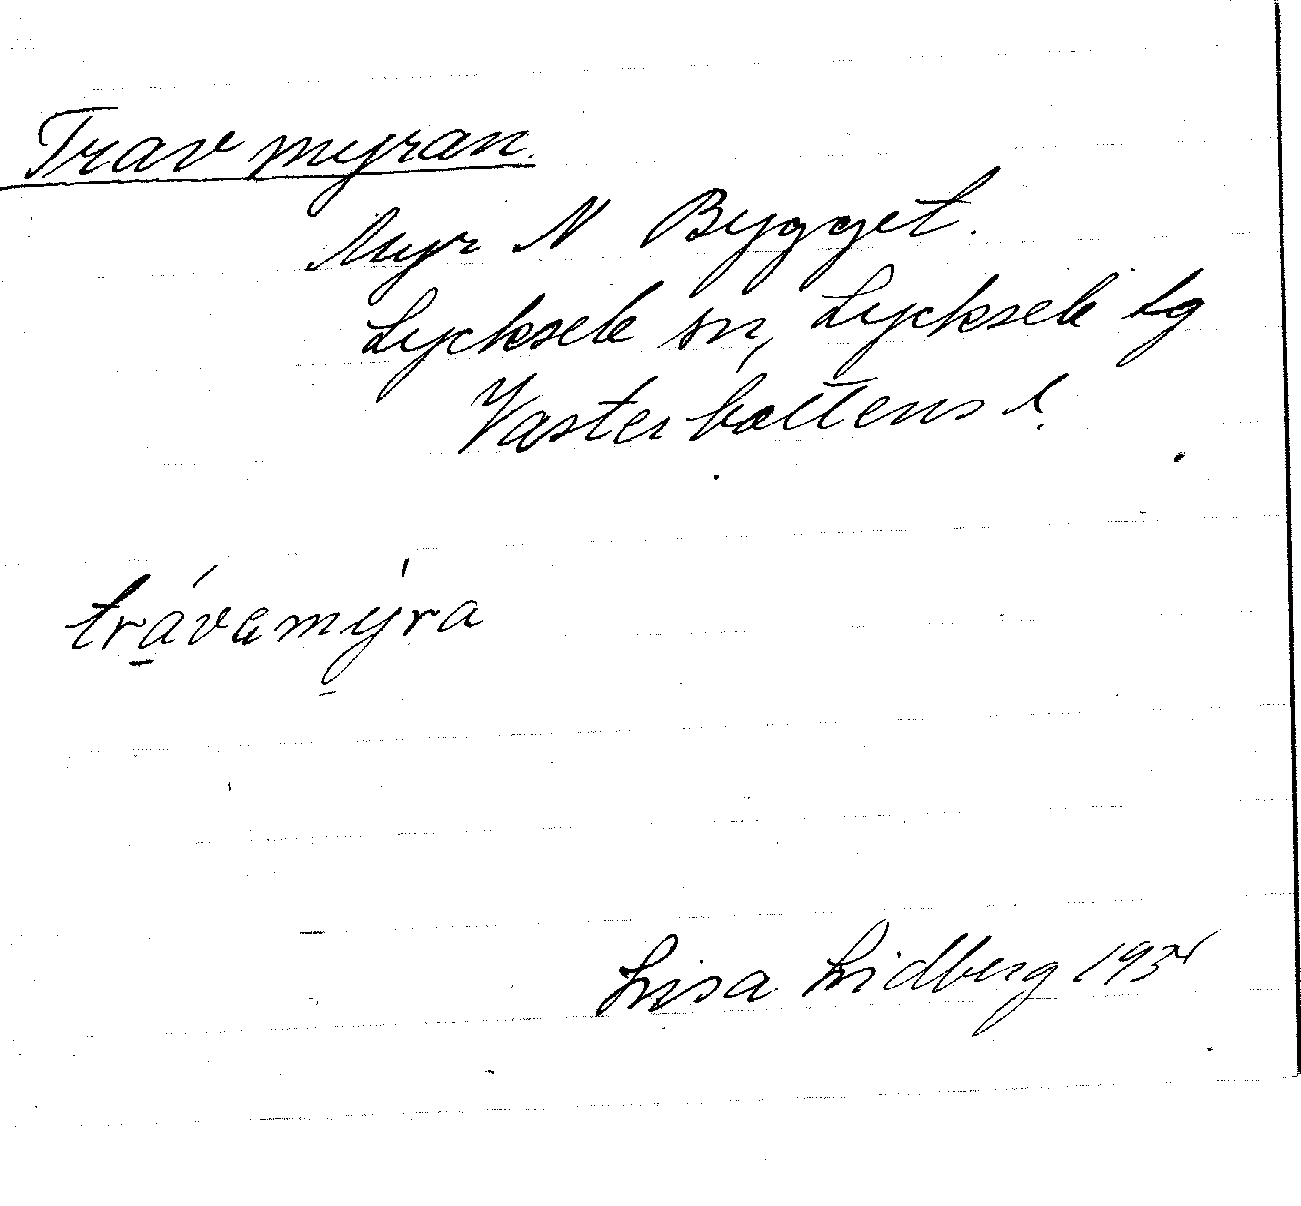 Travmyran.
Myr N Bygget.
Lycksele sn, Lycksele tg
Västerbottens l.
trávamýra
Lisa Lidberg